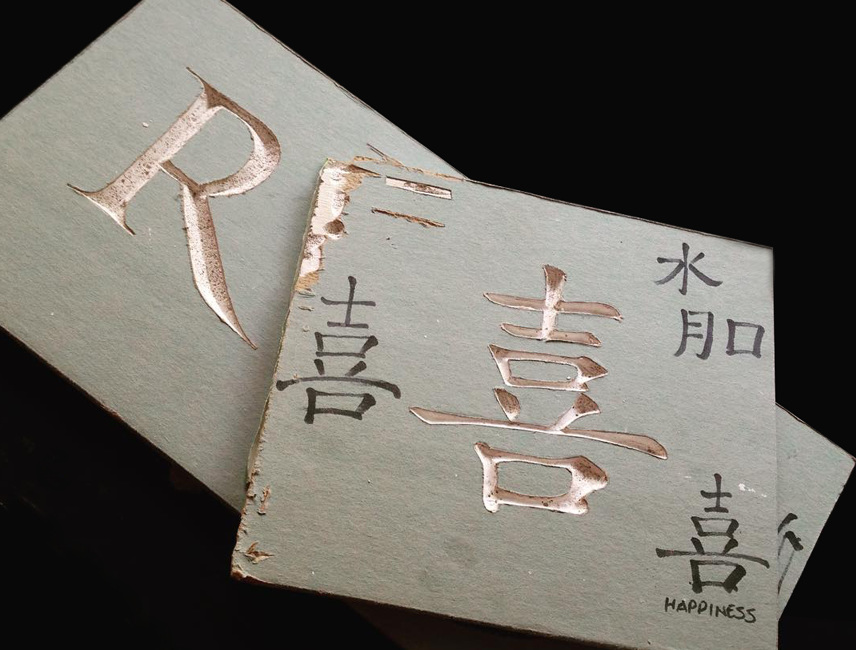 R
喜
喜
水
月口
喜
HAPPINESS